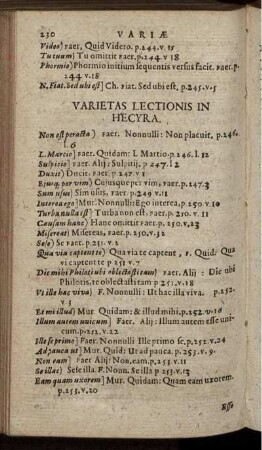 230 VARIÆ
Video) Faer, Quid Videro. p.244.v.15
Tu tuum) Tu omittit Faer, p.244.v 18
Phormio) Phormio initium sequentis versus facit. Faer. p.
244 v.18
N. Fiat. Sed ubi est] Ch. Fiat. Sed ubi est, p.245.v.5
VARIETAS LECTIONIS IN
HECYRA.
Non est peracta) Faer. Nonnulli: Non placuit, p.246.
l.6
L. Marcio) Faer. Quidam: L. Martio p.246. l.12
Sulpicio) Faer. Alij: Sulpitij, p 247. l2
Duxit) Ducit. Faer. p 247 v 1
Ejusq. per vim) Cujusque per vim, Faer. p.247.3
Sum usus) Sim usus, Faer. p 249 v.11
Interea ego] Mur. Nonnulli: Ego interea, p.250 v.10
Turba nulla est) Turba non est. Faer. p. 250. v. 11
Causam hanc) Hanc omittit Faer. p.250.v.23
Misereat) Misereas, Faer. p.250.v.32
Sese) Se Faer. p.251. v.2
Qua via captent te) Qua via te captent, F. Quid: Qua
vi captent te p 251 v.7
Dic mihi Philoti ubi oblectasti eam) Faer. Alij: Dic ubi
Philotis, te oblectasti eam p 251. v.18
Vt illo hac viva) F. Nonnulli: Ut hac illa viva. p.252.
v.3
Et mi illud) Mur. Quidam: & illud mihi. p.252.v.16
Illum autem unicum] Faer. Alij: Illum autem esse uni-
cum. p.252.v.22
Ille se primo] Faer. Nonnulli Ille primo se, p.252.v.24
Ad pauca ut] Mur. Quid: Ut ad pauca. p.253.v.9.
Non eam] Faer. Alij: Non, eam, p.253.v.11
Se illae) Sese illa. F. Nonn. Se illa p 253.v.13
Eam quam uxorem] Mur. Quidam: Quam eam uxorem.
p.253.v.20
Esse